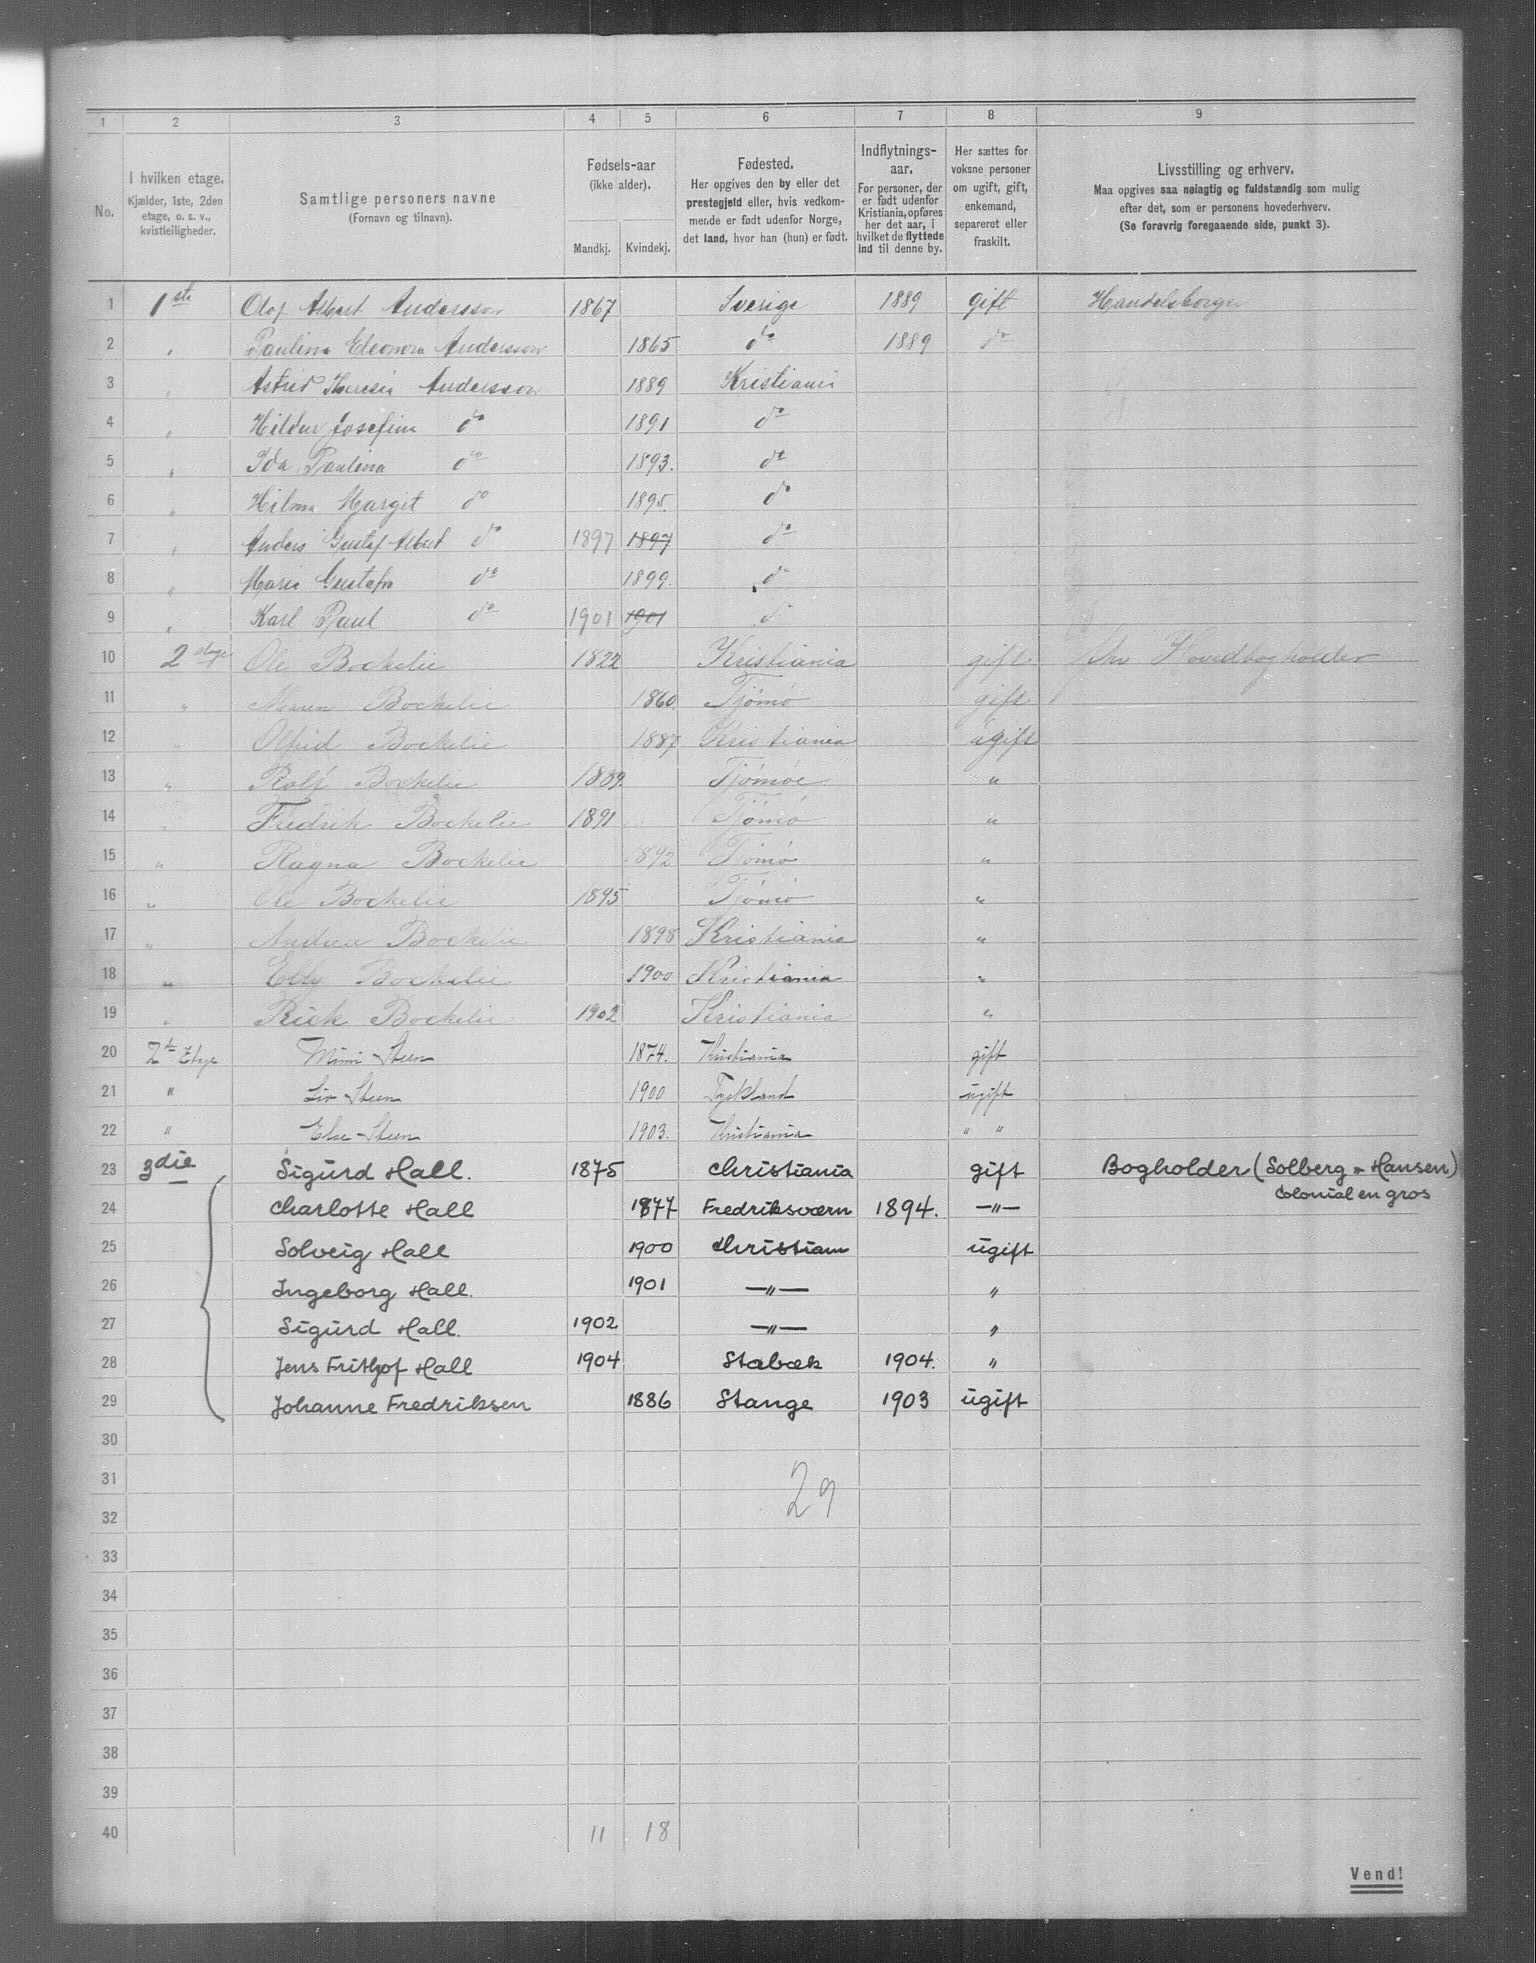 1 2 3 4 5 6 7 8 9
No.
I hvilken etage.
Kjælder, 1ste, 2den
etage, o. s. v.,
kvistleiligheder.
Samtlige personers navne
(Fornavn og tilnavn).
Fødsels-aar
(ikke alder).
Mandkj. Kvindekj.
Fødested.
Her opgives den by eller det
prestegjeld eller, hvis vedkom-
mende er født udenfor Norge,
det land, hvor han (hun) er født.
Indflytnings-
aar.
For personer, der
er født udenfor
Kristiania, opføres
her det aar, i
hvilket de flyttede
ind til denne by.
Her sættes for
voksne personer
om ugift, gift,
enkemand,
separeret eller
fraskilt.
Livsstilling og erhverv.
Maa opgives saa nøiagtig og fuldstændig som mulig
efter det, som er personens hovederhverv.
(Se forøvrig foregaaende side, punkt 3).
1 1ste Olof Albert Andersson 1867 Sverige 1889 gift Handelsborger
2 " Paulina Eleonora Andersson 1865 do 1889 do
3 " Astrid Theresia Andersson 1889 Kristiania
4 " Hildur Josefina do 1891 do
5 " Ida Paulina do 1893. do
6 " Hilma Margit do 1895. do
7 " Anders Gustaf Albert do 1897 1897 do
8 " Maria Gustafva do 1899. do
9 " Karl Paul do 1901 1901 do
10 2 etage Ole Bockelie 1822 Kristiania gift fhv Hovedbogholder
11 " Bockelie 1860. Tjömö gift
12 " Bockelie 1887 Kristiania ugift
13 " Rolf Bockelie 1889. Tjömöe "
14 " Fredrik Bockelie 1891 Tjömö "
15 " Ragna Bockelie 1892 Tjömö "
16 " Ole Bockelie 1895 Tjömö "
17 " Andrea Bockelie 1898 Kristiania "
18 " Elly Bockelie 1900 Kristiania "
19 " Bockelie 1902 Kristiania "
20 2den Etage Mimi Steen 1874. Kristiania gift
21 " Liv Steen 1900 Tyskland ugift
22 " Else Steen 1903. Kristiania " "
23 3die Sigurd Hall. 1875 Christiania gift Bogholder (Solberg & Hansen)
Colonial en gros
24 Charlotte Hall 1877 Fredriksværn 1894. —"—
25 Solveig Hall 1900 Christiania ugift
26 Ingeborg Hall. 1901 —"— "
27 Sigurd Hall. 1902 —"— "
28 Jens Frithjof Hall 1904 Stabæk 1904. "
29 Johanne Fredriksen 1886 Stange 1903 ugift
30
31
29
32
33
34
35
36
37
38
39
40 11 18
Vend!